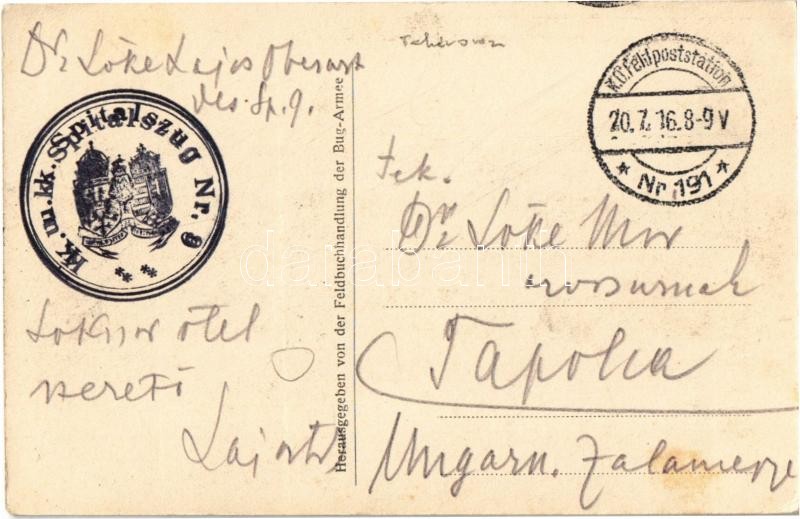 Dr Lőke Lajos Oberarzt
des Sp. 9.
K. u. k. Spitalszug Nr. 9
Herausgegeben von der Feldbuchhandlung der Bug-Armee
K.D. Feldpoststation
20.7.16.8-9V
* Nr. 191 *
Tek.
Dr Lőke Mór
orvosurnak
Tapolca
Ungarn. Zalamegye
Sokszor ölel
szerető
Lajos
darabanth